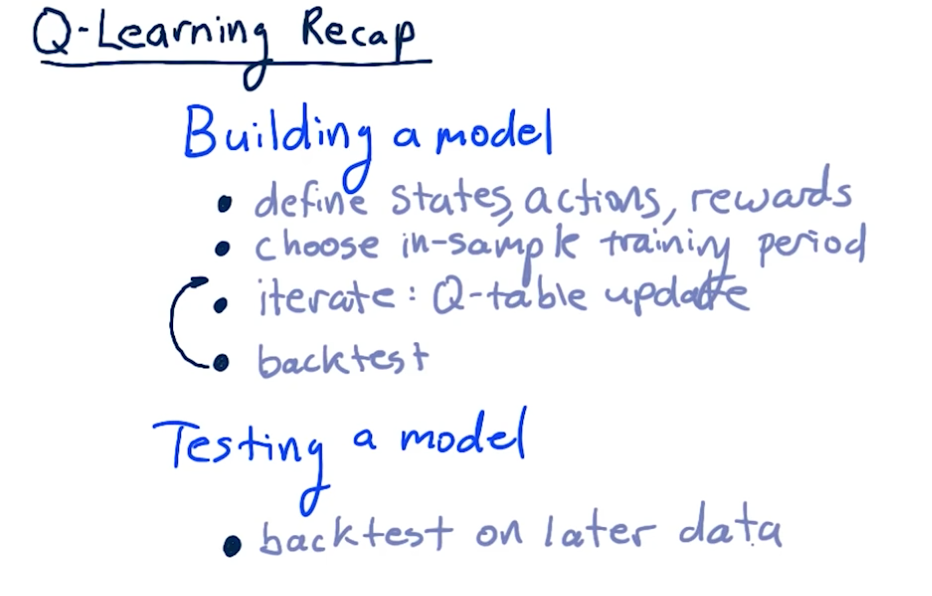 Q-Learning Recap
Building a model
• define states, actions, rewards
• choose in-sample training period
• iterate: Q-table update
• backtest
Testing a model
• backtest on later data